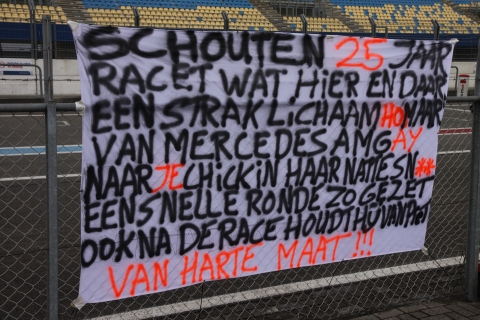 SCHOUTEN 25 JAAR
RACET WAT HIER EN DAAR
EEN STRAK LICHAAM HO NAAR
VAN MERCEDES AMGAY
NAAR JE CHICK IN HAAR NATTE SN**
EEN SNELLE RONDE ZO GEZET
OOK NA DE RACE HOUDT HIJ VAN PRET
VAN HARTE MAAT !!!